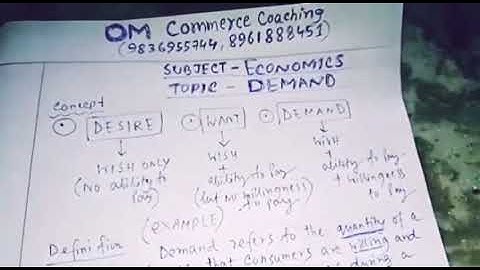 OM Commerce Coaching
(9836955744, 8961888451)
SUBJECT - ECONOMICS
TOPIC - DEMAND
Concept
DESIRE
WANT
DEMAND
WISH ONLY
(No ability to
pay)
WISH
+
ability to pay
(but no willingness
to pay)
WISH
+
ability to pay
+ willingness
to pay
(EXAMPLE)
Definition
Demand refers to the quantity of a
that consumers are willing and
during a